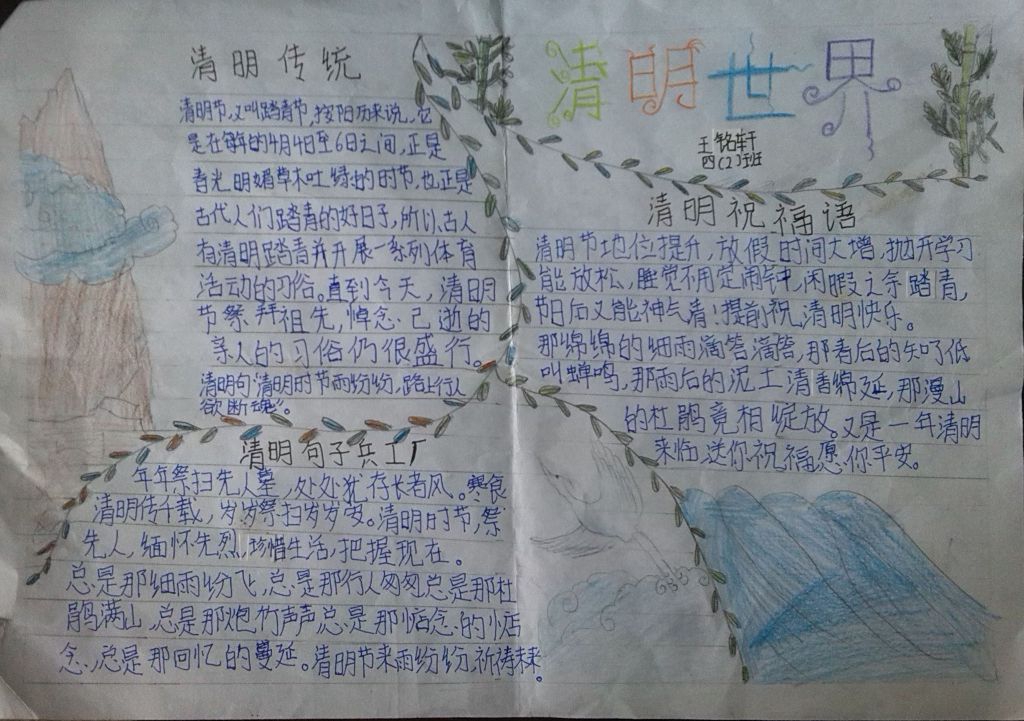 清明世界
王铭轩
四(2)班
清明传统
清明节,又叫踏青节,按阳历来说,它
是在每年的4月4日至6日之间,正是
春光明媚草木吐绿的时节,也正是
古代人们踏青的好日子,所以古人
有清明踏青并开展一系列体育
活动的习俗。直到今天,清明
节祭拜祖先,悼念已逝的
亲人的习俗仍很盛行。
清明句:清明时节雨纷纷,路上行人
欲断魂。
清明祝福语
清明节地位提升,放假时间大增,抛开学习
能放松,睡觉不用定闹钟,闲暇之余踏青,
节日后又能神气清,提前祝清明快乐。
那绵绵的细雨滴答滴答,那春后的知了低
叫蝉鸣,那雨后的泥土清香绵延,那漫山
的杜鹃竟相绽放。又是一年清明
来临,送你祝福愿你平安。
清明句子兵工厂
年年祭扫先人墓,处处犹存长者风。寒食
清明传千载,岁岁祭扫岁岁安。清明时节,祭
先人,缅怀先烈,珍惜生活,把握现在。
总是那细雨纷飞,总是那行人匆匆总是那杜
鹃满山,总是那炮竹声声总是那惦念的惦
念,总是那回忆的蔓延。清明节来雨纷纷,祈祷未来。